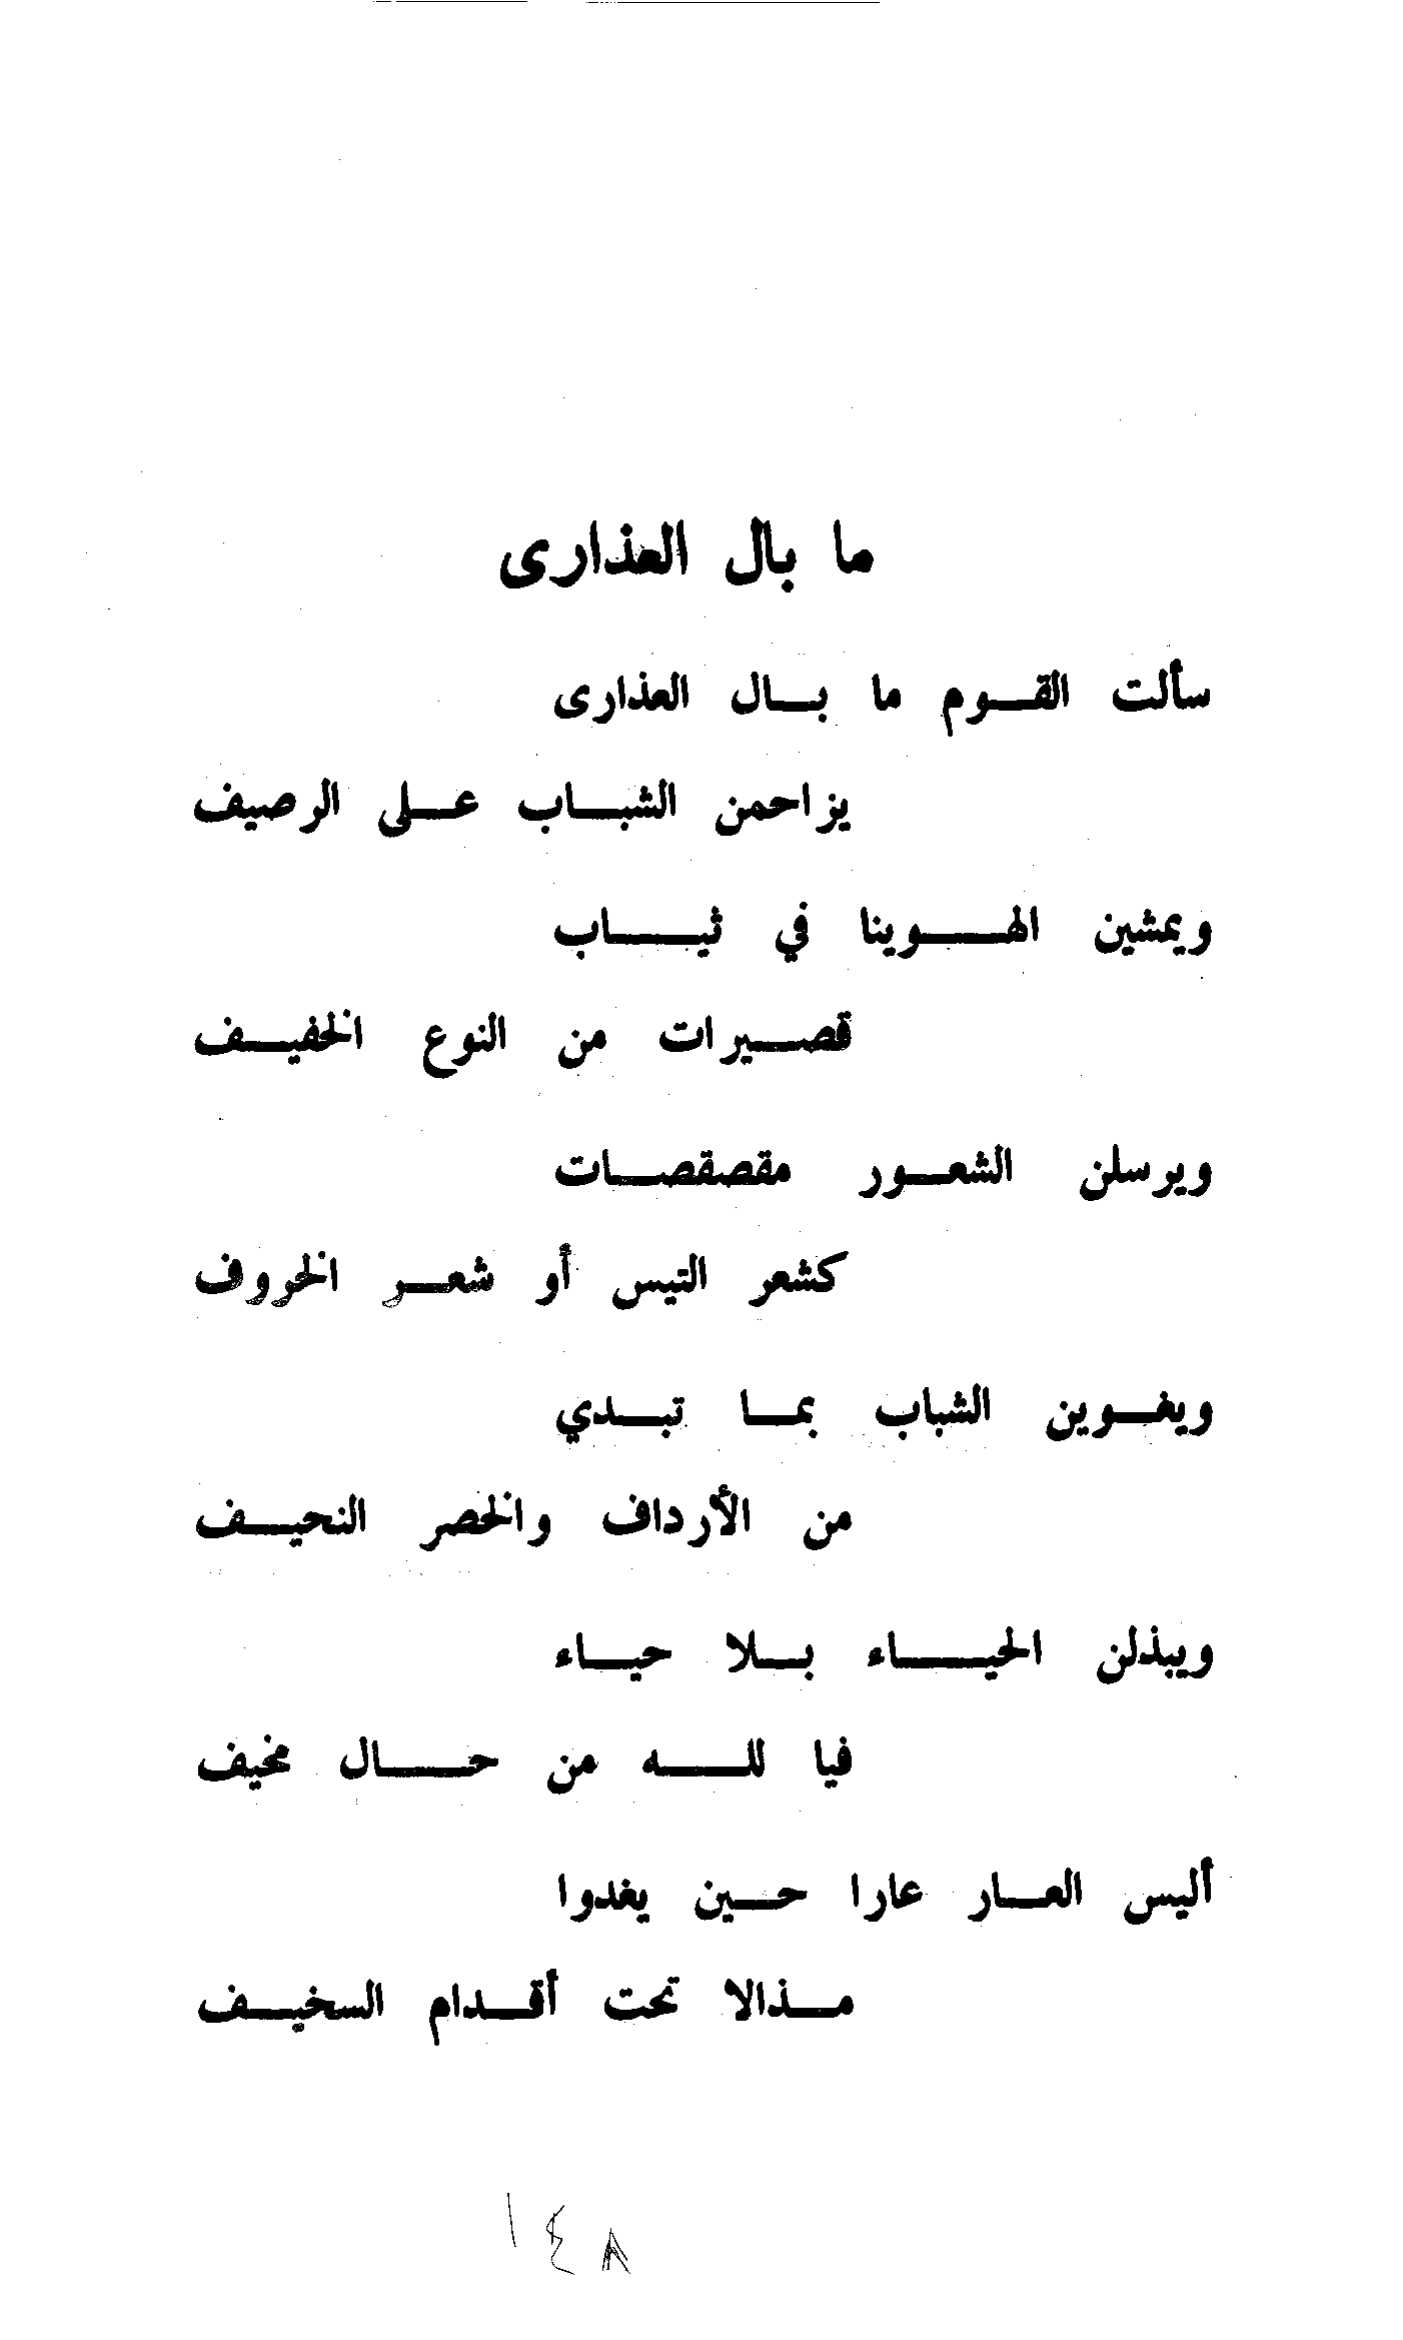 ما بال العذارى
سألت القوم ما بال العذارى
يزاحمن الشباب على الرصيف
ويمشين الهوينا في ثياب
قصيرات من النوع الخفيف
ويرسلن الشعور مقصقصات
كشعر التيس أو شعر الخروف
ويغوين الشباب بما تبدي
من الأرداف والخصر النحيف
ويبذلن الحياء بلا حياء
فيا لله من حال مخيف
أليس العار عارا حين يغدوا
مذالا تحت أقدام السخيف
١٤٨